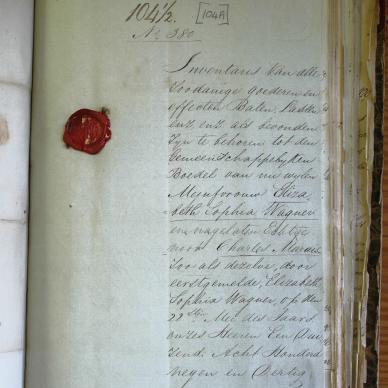 104½. [104A]
No 380
Inventaris van alle
zoodanige goederen en
effecten Balen, Lasten
enz. enz. als bevonden
zyn te behooren tot den
Gemeenschappelyken
Boedel van nu wylen
Mejufvrouw Eliza
beth Sophia Wagner
en nagelaten Echtge
noot Charles Marais
Zoo als dezelve, door
eerstgemelde, Elizabeth
Sophia Wagner, op den
22sten Mei des Jaars
onzes Heeren Een Dui
zend Acht Honderd
Negen en Dertig